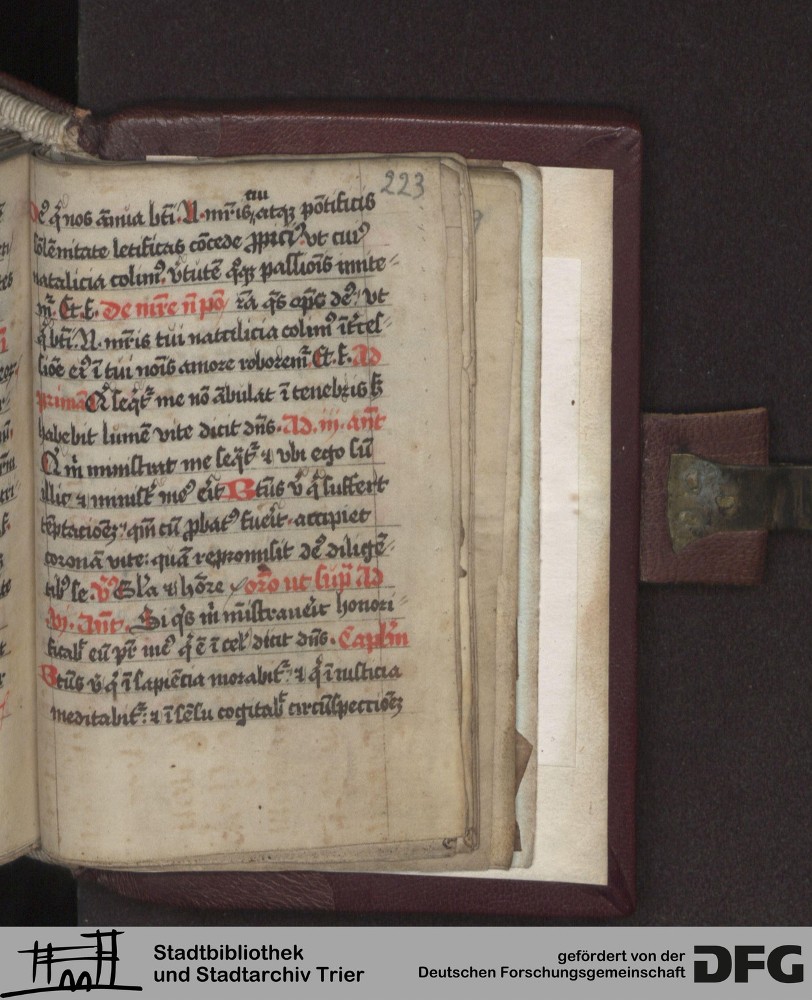 223
tui
De' q̄ nos ān̄ua bt̄i .N. mr̄is atqꝫ pōtificis
sōlēnitate letificas cōcede ꝓpici' vt cui'
natalicia colim' v̓tutē q̊qꝫ passiōis imite-
m̄ . Et .E. De mr̄e n̄ pō r̄a q̄s op̄s de' vt
q̄ bt̄i .N. mr̄is tui natalicia colim' īt̓ces-
siōe ei' ī tui nōis amore roborem̄ . Et .E. Ad
primā Qi seq̄t᷑ me nō ābulat ī tenebris sꝫ
habebit lumē vite dicit dn̄s . Ad .iij. an̄t
Q m̄ ministrat me seq̄t᷑ ⁊ vbi ego sū
illic ⁊ minist᷑ me' er̄it Btūs v̓ q̄ suffert
tēptacioēꝫ qm̄ cū ꝓbat' fuer̄it accipiet
coronā vite : quā repromisit de' diligē-
tib' se . V' Gl'a ⁊ hōre oro ut sup̄ Ad
.Vj. Ant̄ . Si q̄s m̄ mīstraver̄it honori-
ficab' eū pr̄ me' q̄ ē ī cel' dicit dn̄s . Capl̄m
Btūs v̓ q̄ ī sapiēcia morabit᷑ : ⁊ q̄ ī iusticia
meditabit᷑ : ⁊ ī sēsu cogitab' circūspectioēꝫ
Stadtbibliothek
und Stadtarchiv Trier
gefördert von der
Deutschen Forschungsgemeinschaft
DFG